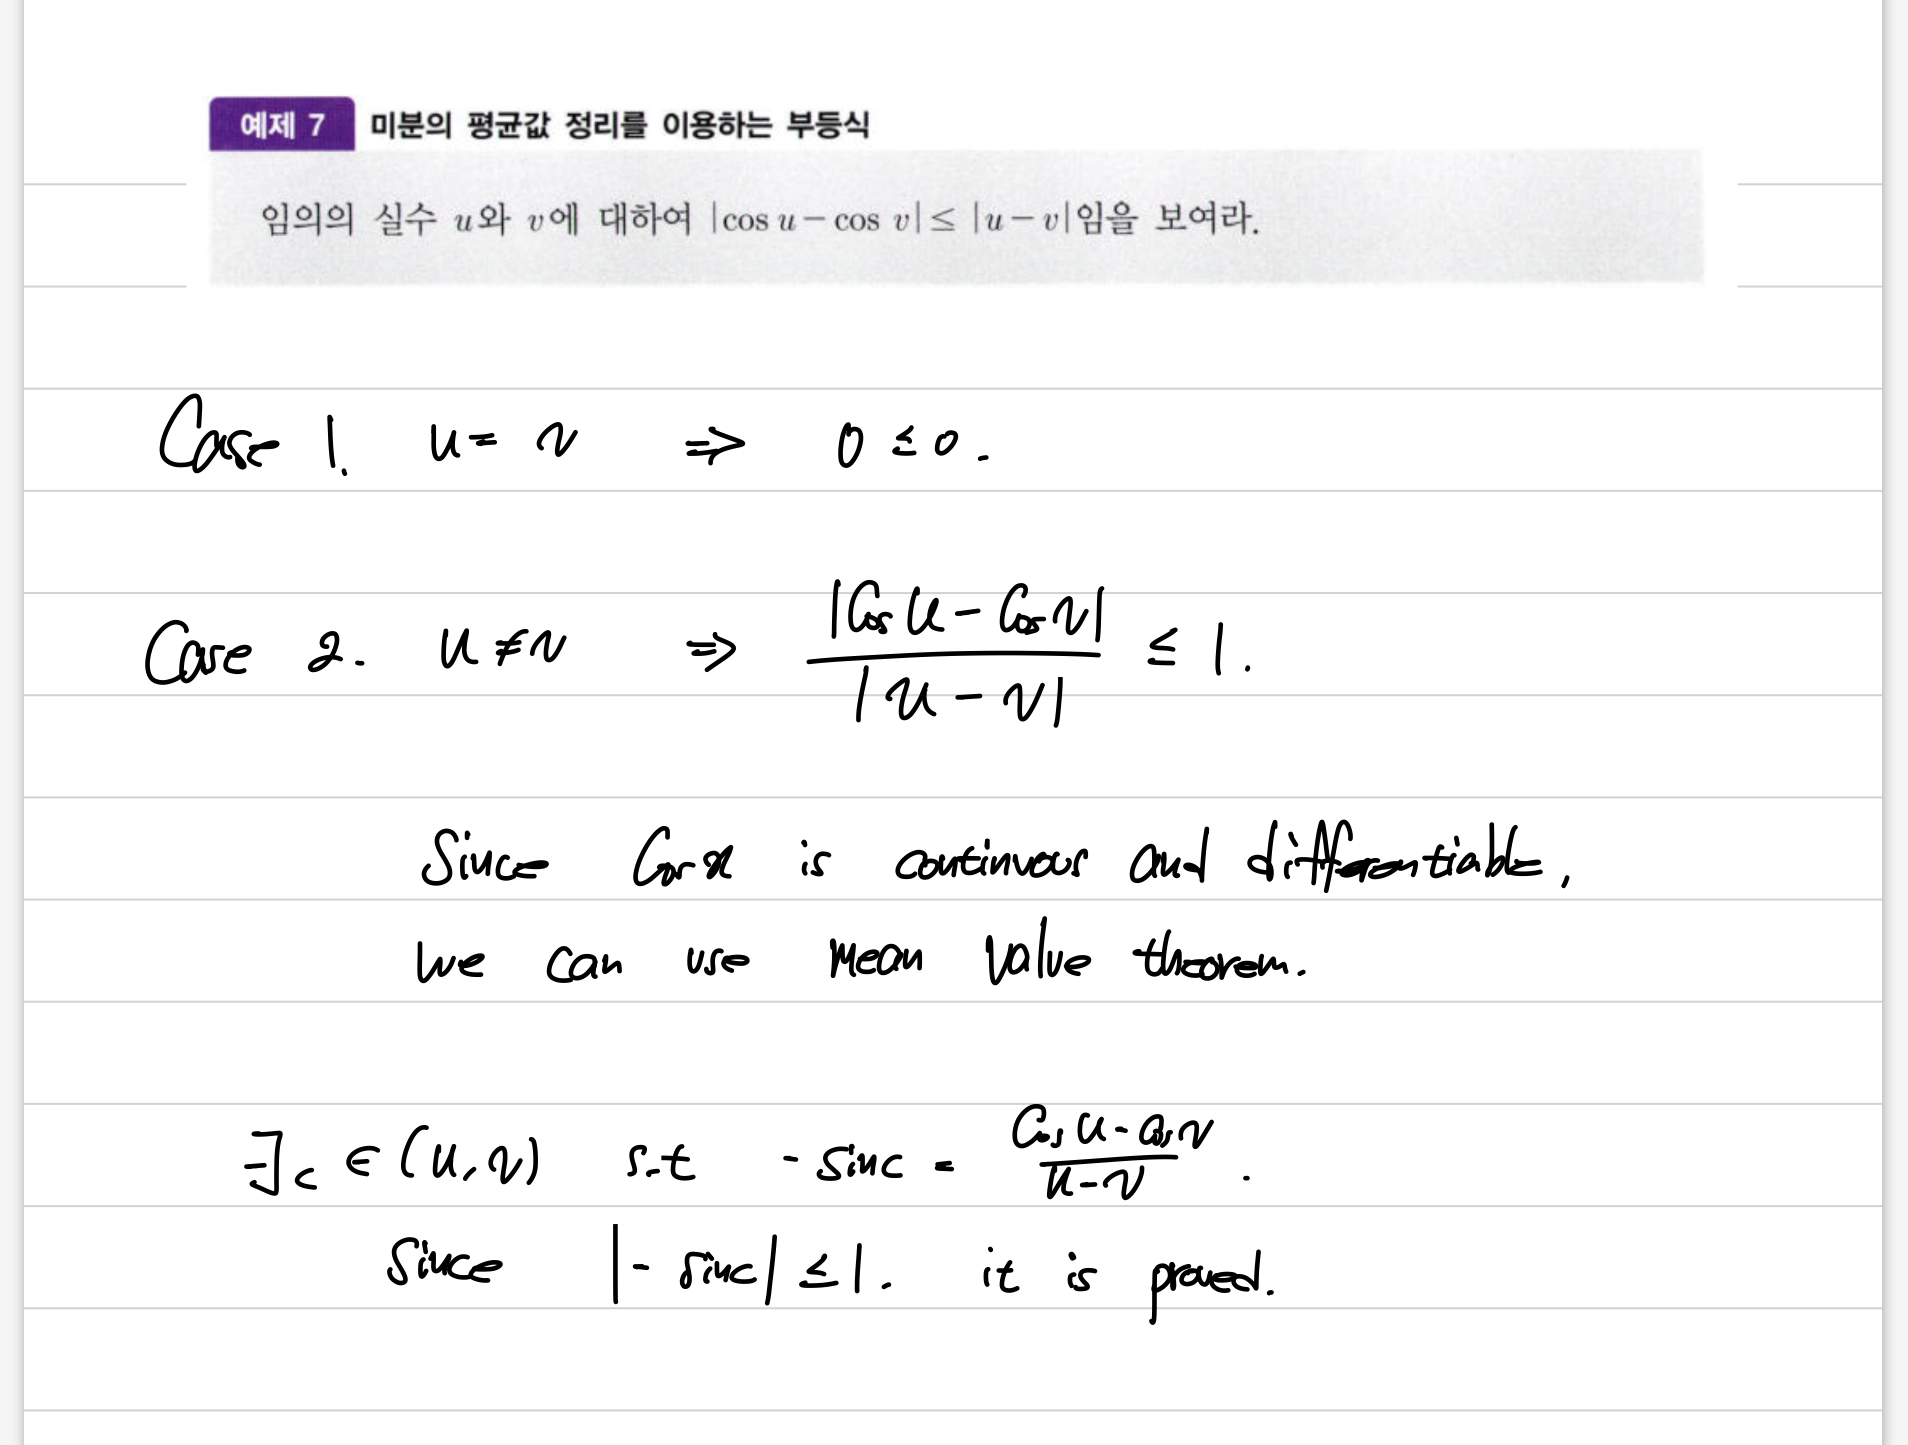 예제 7 미분의 평균값 정리를 이용하는 부등식
임의의 실수 u와 v에 대하여 |cos u − cos v| ≤ |u − v|임을 보여라.
Case 1. u = v ⇒ 0 ≤ 0.
Case 2. u ≠ v ⇒ |Cos u − Cos v| / |u − v| ≤ 1.
Since Cos x is continuous and differentiable,
we can use mean value theorem.
∃c ∈ (u, v) s.t − sin c = (Cos u − cos v) / (u − v).
Since |− sin c| ≤ 1. it is proved.